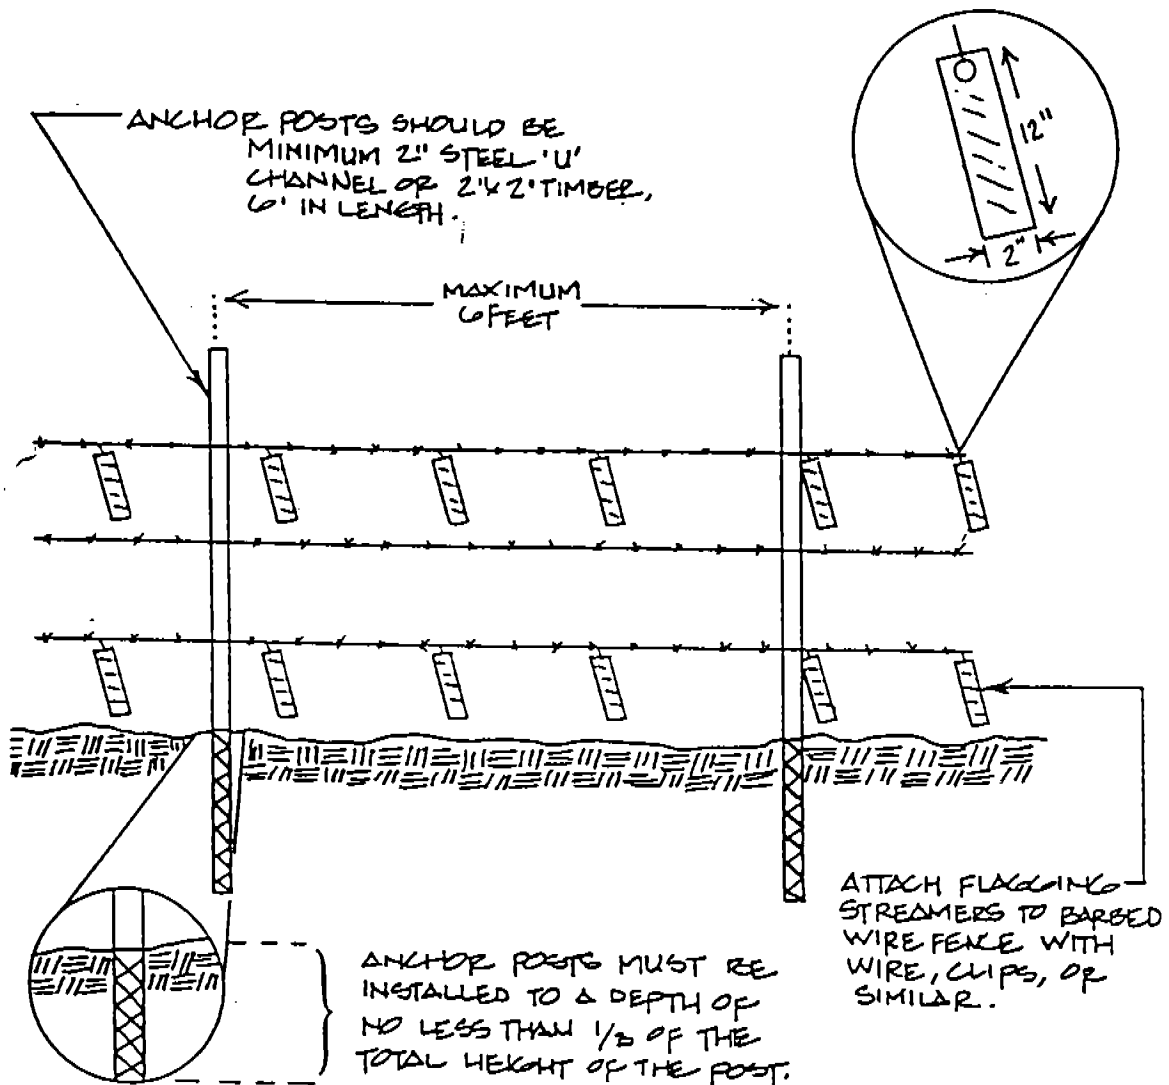 ANCHOR POSTS SHOULD BE
MINIMUM 2" STEEL 'U'
CHANNEL OR 2"X 2" TIMBER,
6' IN LENGTH.
12"
2"
MAXIMUM
6 FEET
ATTACH FLAGGING
STREAMERS TO BARBED
WIRE FENCE WITH
WIRE, CLIPS, OR
SIMILAR.
ANCHOR POSTS MUST BE
INSTALLED TO A DEPTH OF
NO LESS THAN 1/3 OF THE
TOTAL HEIGHT OF THE POST.